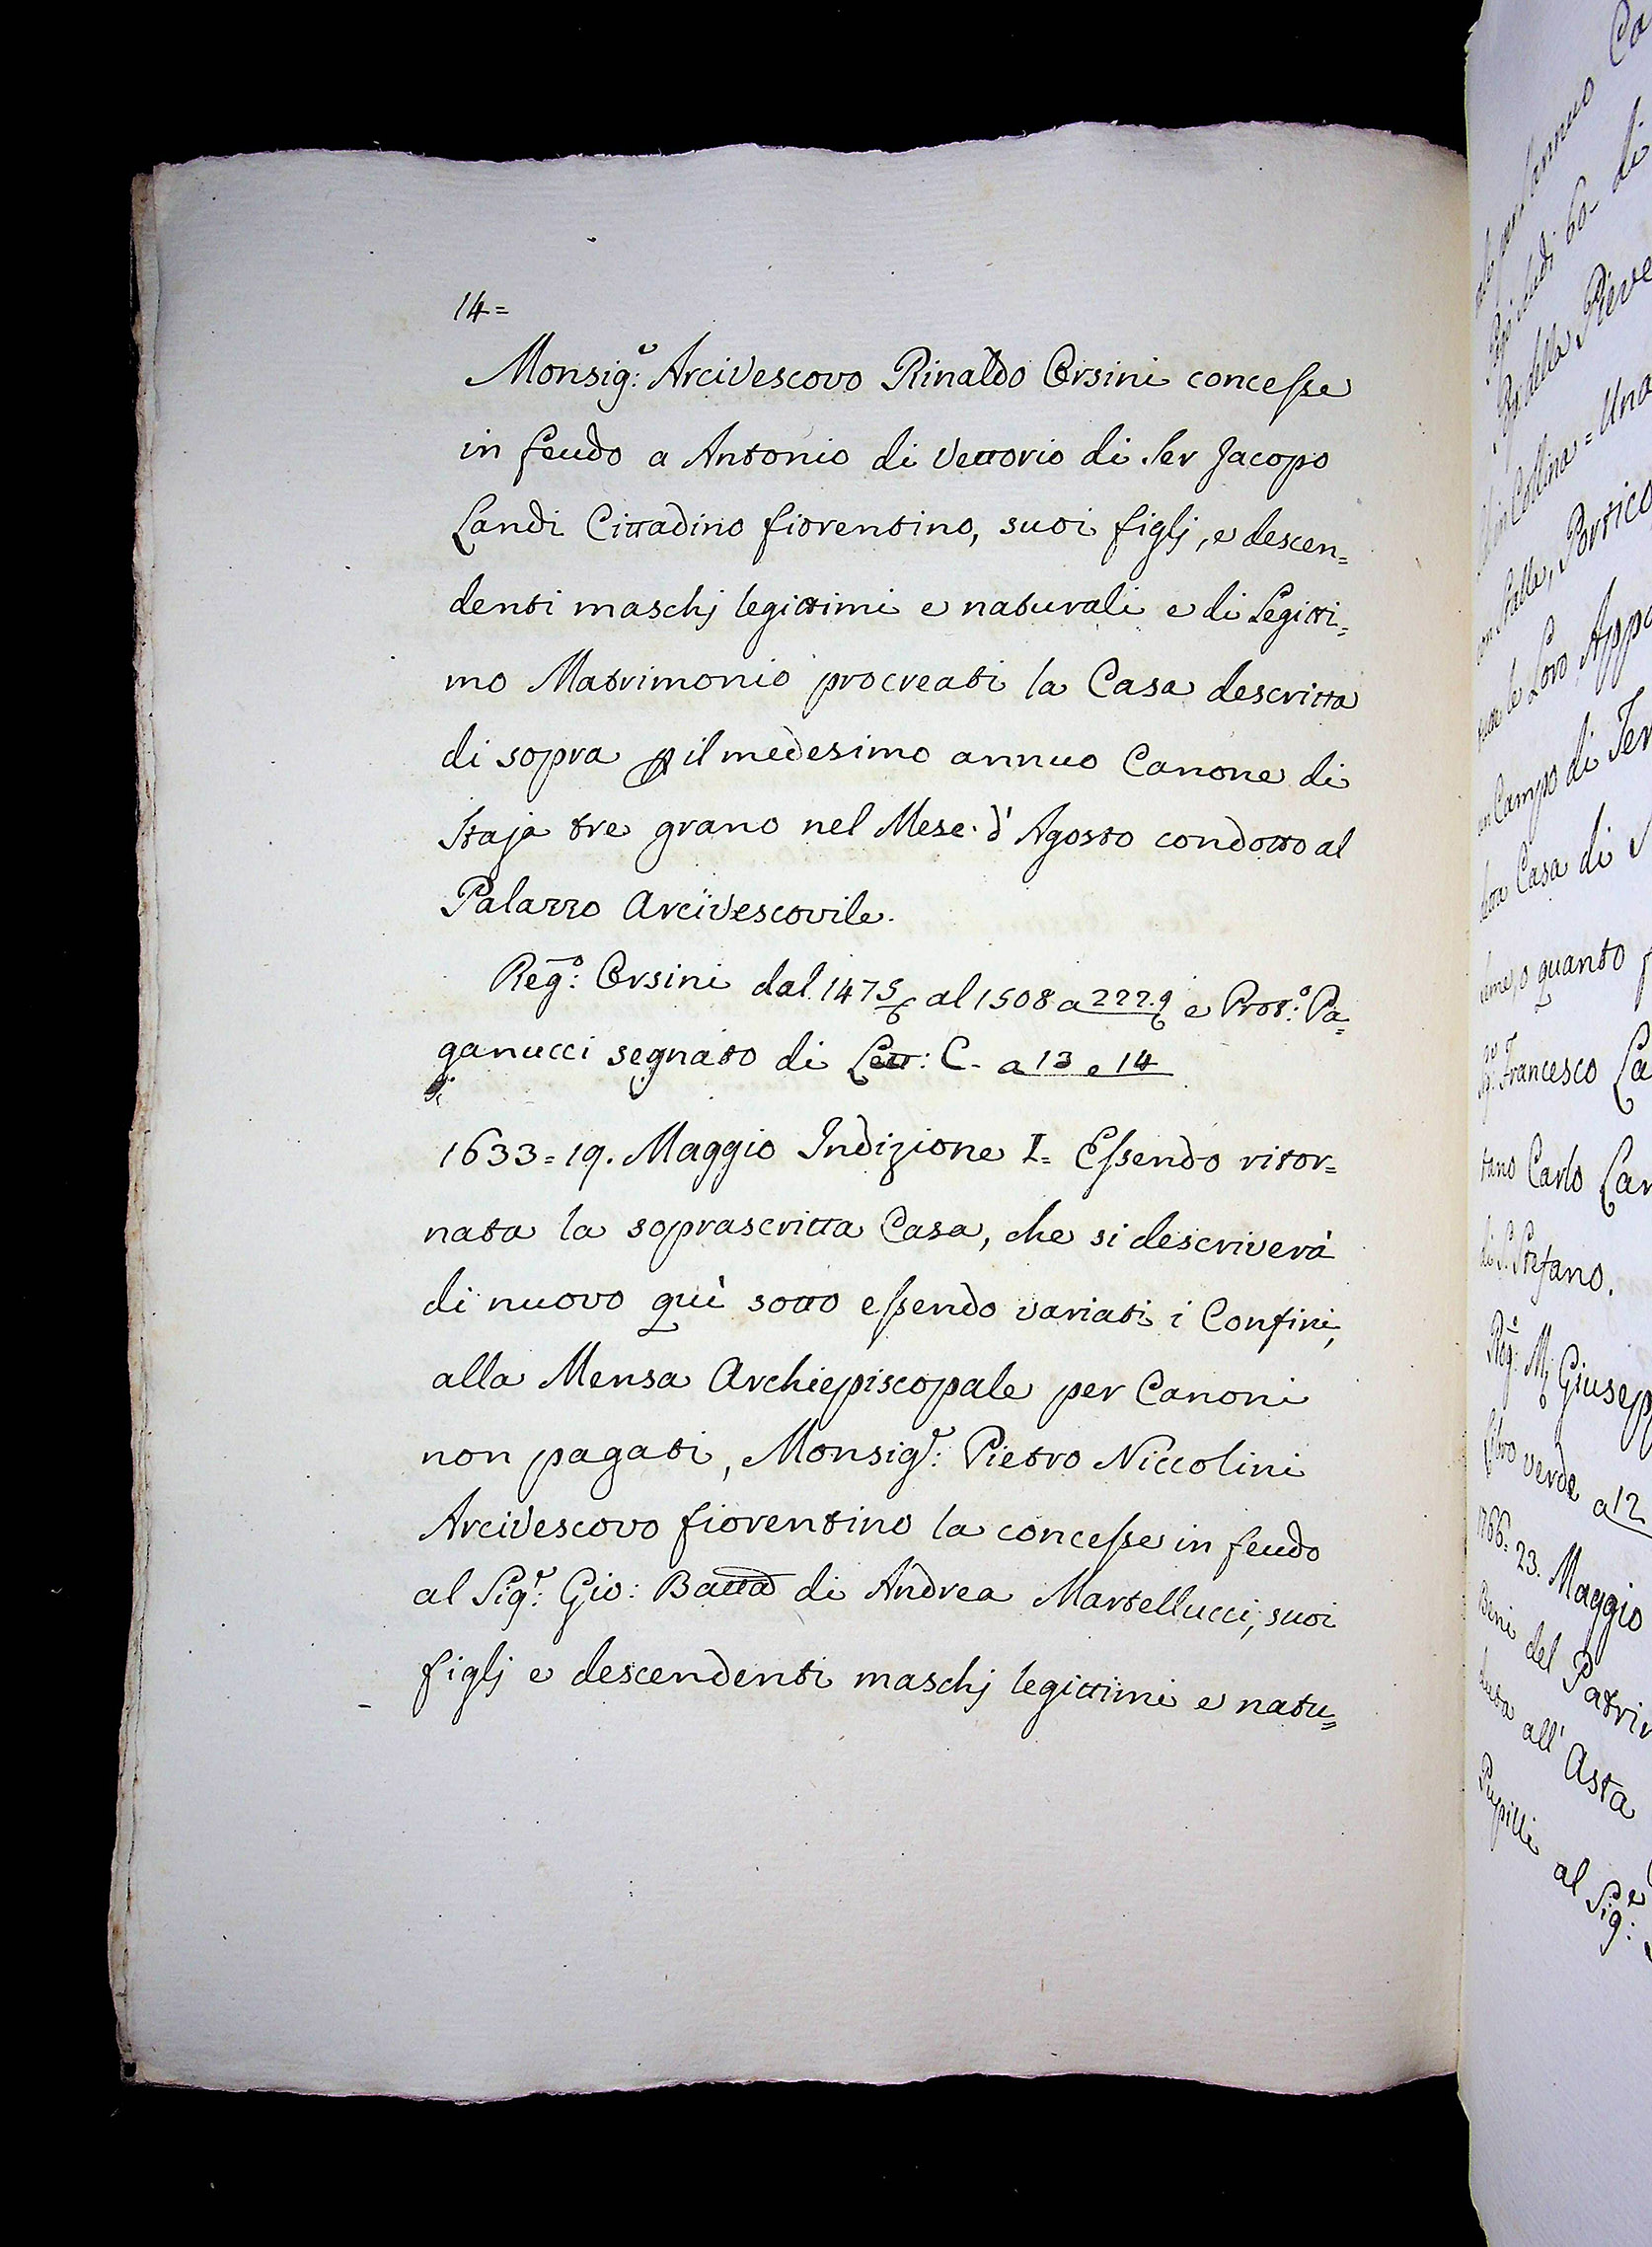 14=
Monsig.r: Arcivescovo Rinaldo Orsini concesse
in feudo a Antonio di Vettorio di Ser Jacopo
Landi Cittadino fiorentino, suoi figlj, e descen=
denti maschj legittimi e naturali e di Legitti=
mo Matrimonio procreati la Casa descritta
di sopra p il medesimo annuo Canone di
Staja tre grano nel Mese d'Agosto condotto al
Palazzo Arcivescovile.
Reg.o: Orsini dal 1475 al 1508 a 222.9 e Prot.o: Pa=
ganucci segnato di Lett: C. a 13 e 14
1633=19. Maggio Indizione I= Essendo ritor=
nata la soprascritta Casa, che si descriverà
di nuovo quì sotto essendo variati i Confini,
alla Mensa Archiepiscopale per Canoni
non pagati, Monsig.r: Pietro Niccolini
Arcivescovo fiorentino la concesse in feudo
al Sig.r: Gio: Batta di Andrea Martellucci, suoi
figlj e descendenti maschj legittimi e natu=
Ca
l'annuo
60 di
della Pieve
in Collina = Una
Stalla, Portico
le Loro Appa
Campo di Ter
Casa di
o quanto
Francesco La
Carlo Lan
di S. Stefano.
Reg.o: M Giusepp
Libro verde a 12
1766=23. Maggio
Beni del Patri
all'Asta
Pupilli al Sig.e: